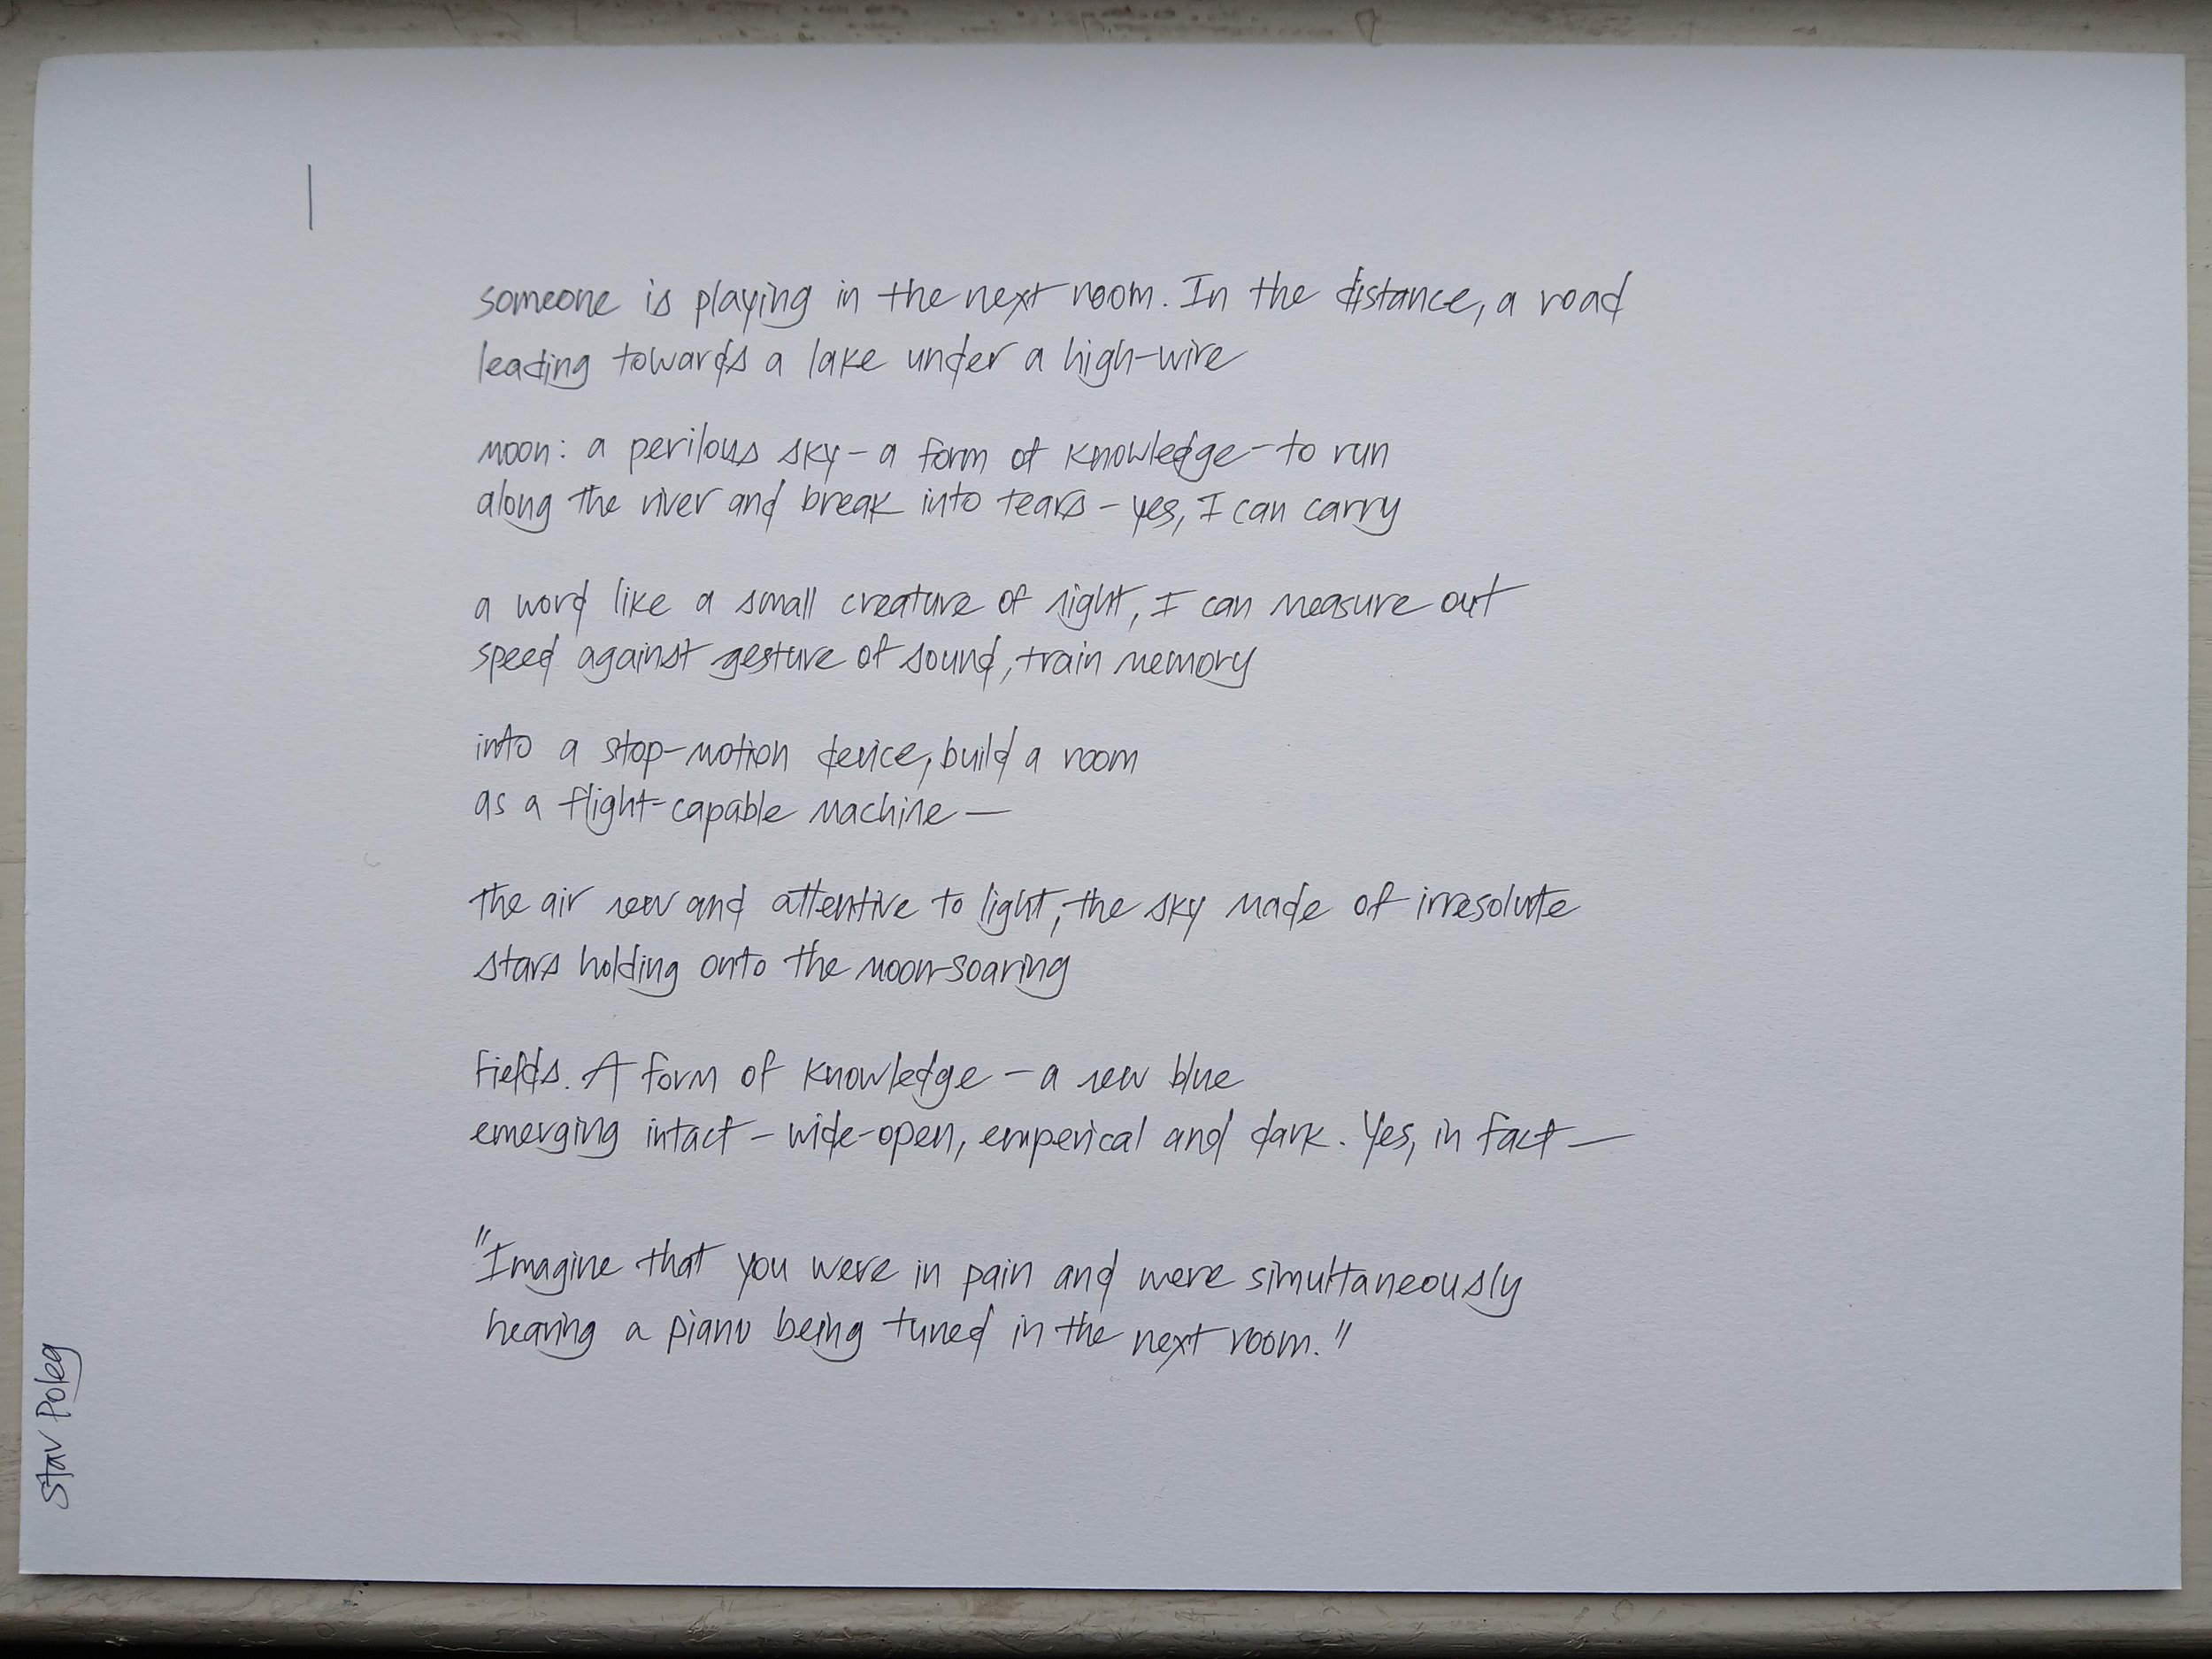 1
someone is playing in the next room. In the distance, a road
leading towards a lake under a high-wire
moon: a perilous sky – a form of knowledge – to run
along the river and break into tears – yes, I can carry
a word like a small creature of night, I can measure out
speed against gesture of sound, train memory
into a stop-motion device, build a room
as a flight-capable machine —
the air new and attentive to light, the sky made of irresolute
stars holding onto the moon-soaring
fields. A form of knowledge – a new blue
emerging intact – wide-open, emperical and dark. Yes, in fact —
"Imagine that you were in pain and were simultaneously
hearing a piano being tuned in the next room."
Stav Poleg